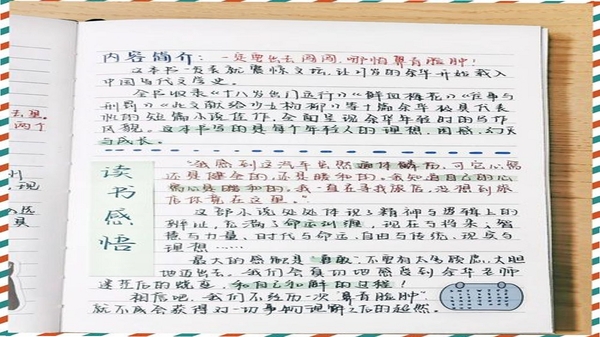 内容简介：一定要出去闯闯，哪怕鼻青脸肿！
这本书一发表就震惊文坛，让21岁的余华开始载入
中国当代文学史。
全书收录《十八岁出门远行》《鲜血梅花》《往事与
刑罚》《此文献给少女杨柳》等十篇余华极具代表
性的短篇小说佳作，全面呈现余华年轻时的写作
风貌。这本书写的是每个年轻人的理想、困惑、幻灭
与成长。
读书感悟
"我感到这汽车虽然遍体鳞伤，可它心窝
还是健全的，还是暖和的。我知道自己的心
窝也是暖和的。我一直在寻找旅店，没想到旅
店你竟在这里。"
这部小说处处体现了精神与逻辑上的
辨证，充满了命运纠缠，现在与将来，智
慧与力量、时代与命运、自由与传统、现实与
理想……
最大的感触是"勇敢"，不要有太多顾虑，大胆
地迈出去。我们会真切地感受到余华老师
迷茫后的蜕变，和自己和解的过程！
相信吧，我们不经历一次"鼻青脸肿"，
就不会获得对一切事物理解之后的超然。
两个